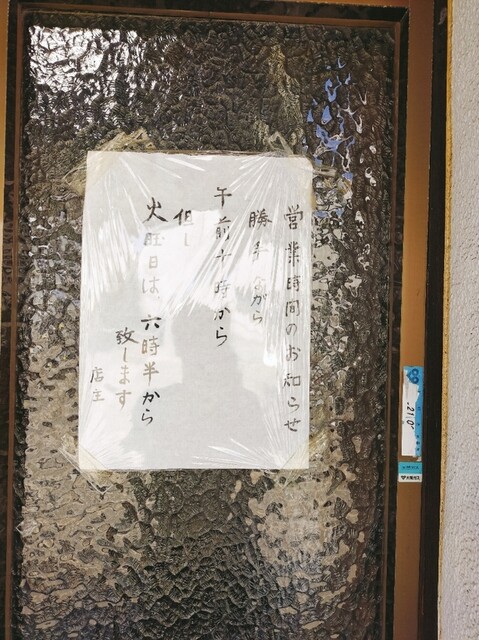 営業時間のお知らせ
勝手乍ら
午前十時から
但し
火旺日は、六時半から
致します
店主